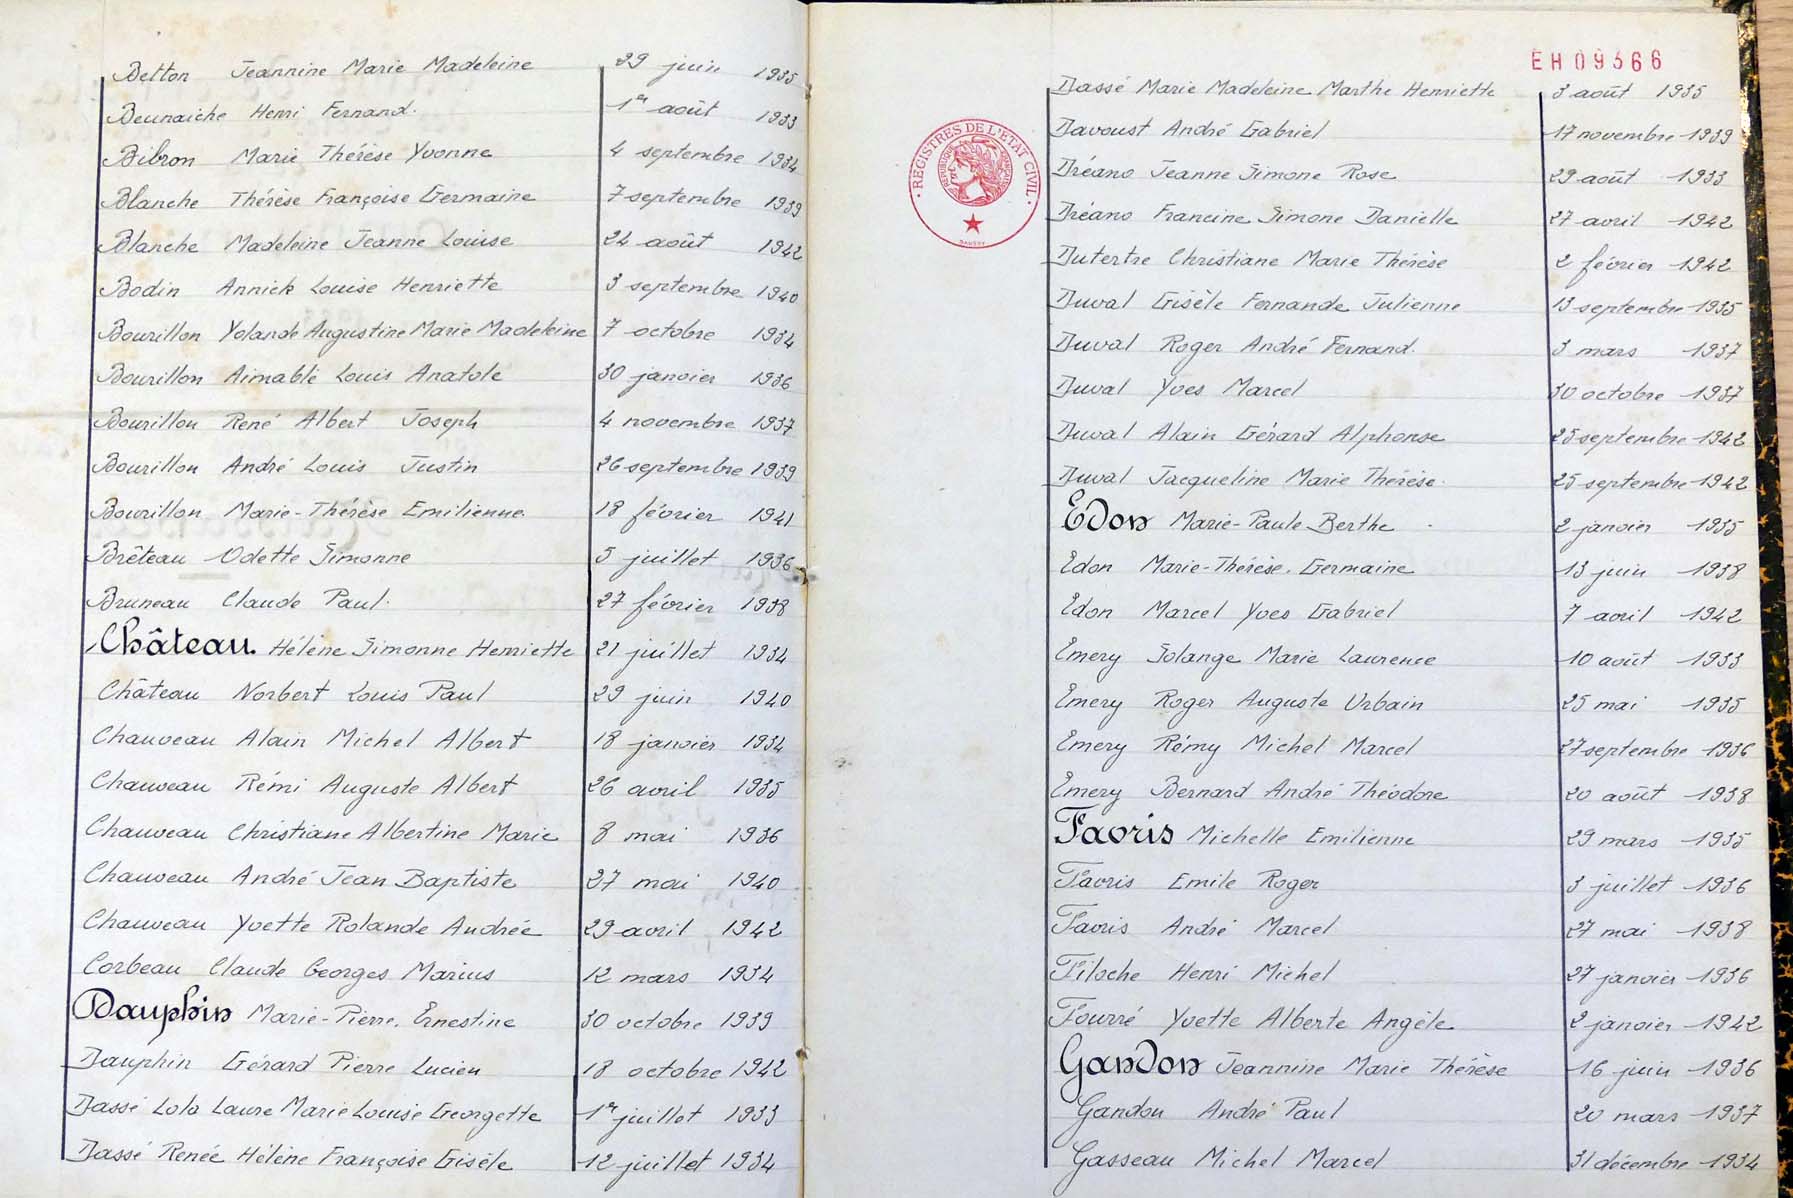 Betton Jeannine Marie Madeleine 29 juin 1935
Beunaiche Henri Fernand. 1er août 1933
Bibron Marie Thérèse Yvonne 4 septembre 1934
Blanche Thérèse Françoise Germaine 7 septembre 1939
Blanche Madeleine Jeanne Louise 24 août 1942
Bodin Annick Louise Henriette 3 septembre 1940
Bourillon Yolande Augustine Marie Madeleine 7 octobre 1934
Bourillon Aimable Louis Anatole 30 janvier 1936
Bourillon René Albert Joseph 4 novembre 1937
Bourillon André Louis Justin 26 septembre 1939
Bourillon Marie-Thérèse Emilienne 18 février 1941
Brêteau Odette Simonne 5 juillet 1936
Bruneau Claude Paul. 27 février 1938
Château. Hélène Simonne Henriette 21 juillet 1934
Château Norbert Louis Paul 29 juin 1940
Chauveau Alain Michel Albert 18 janvier 1934
Chauveau Rémi Auguste Albert 26 avril 1935
Chauveau Christiane Albertine Marie 8 mai 1936
Chauveau André Jean Baptiste 27 mai 1940
Chauveau Yvette Rolande Andrée 29 avril 1942
Corbeau Claude Georges Marius 12 mars 1934
Dauphin Marie-Pierre. Ernestine 30 octobre 1939
Dauphin Gérard Pierre Lucien 18 octobre 1942
Dassé Lola Laure Marie Louise Georgette 1er juillet 1933
Dassé Renée Hélène Françoise Gisèle 12 juillet 1934
EH09366
REGISTRES DE L'ETAT CIVIL
RÉPUBLIQUE FRANÇAISE
Dassé Marie Madeleine Marthe Henriette 3 août 1935
Davoust André Gabriel 17 novembre 1939
Dréano Jeanne Simone Rose 29 août 1933
Dréano Francine Simone Danielle 27 avril 1942
Dutertre Christiane Marie Thérèse 2 février 1942
Duval Gisèle Fernande Julienne 13 septembre 1935
Duval Roger André Fernand. 3 mars 1937
Duval Yves Marcel 30 octobre 1937
Duval Alain Gérard Alphonse 25 septembre 1942
Duval Jacqueline Marie Thérèse. 25 septembre 1942
Edon Marie-Paule Berthe 2 janvier 1935
Edon Marie-Thérèse. Germaine 13 juin 1938
Edon Marcel Yves Gabriel 7 avril 1942
Emery Solange Marie Laurence 10 août 1933
Emery Roger Auguste Urbain 25 mai 1935
Emery Rémy Michel Marcel 27 septembre 1936
Emery Bernard André Théodore 20 août 1938
Favris Michelle Emilienne 29 mars 1935
Favris Emile Roger 3 juillet 1936
Favris André Marcel 27 mai 1938
Filoche Henri Michel 27 janvier 1936
Fourré Yvette Alberte Angèle 2 janvier 1942
Gandon Jeannine Marie Thérèse 16 juin 1936
Gandon André Paul 20 mars 1937
Gasseau Michel Marcel 31 décembre 1934